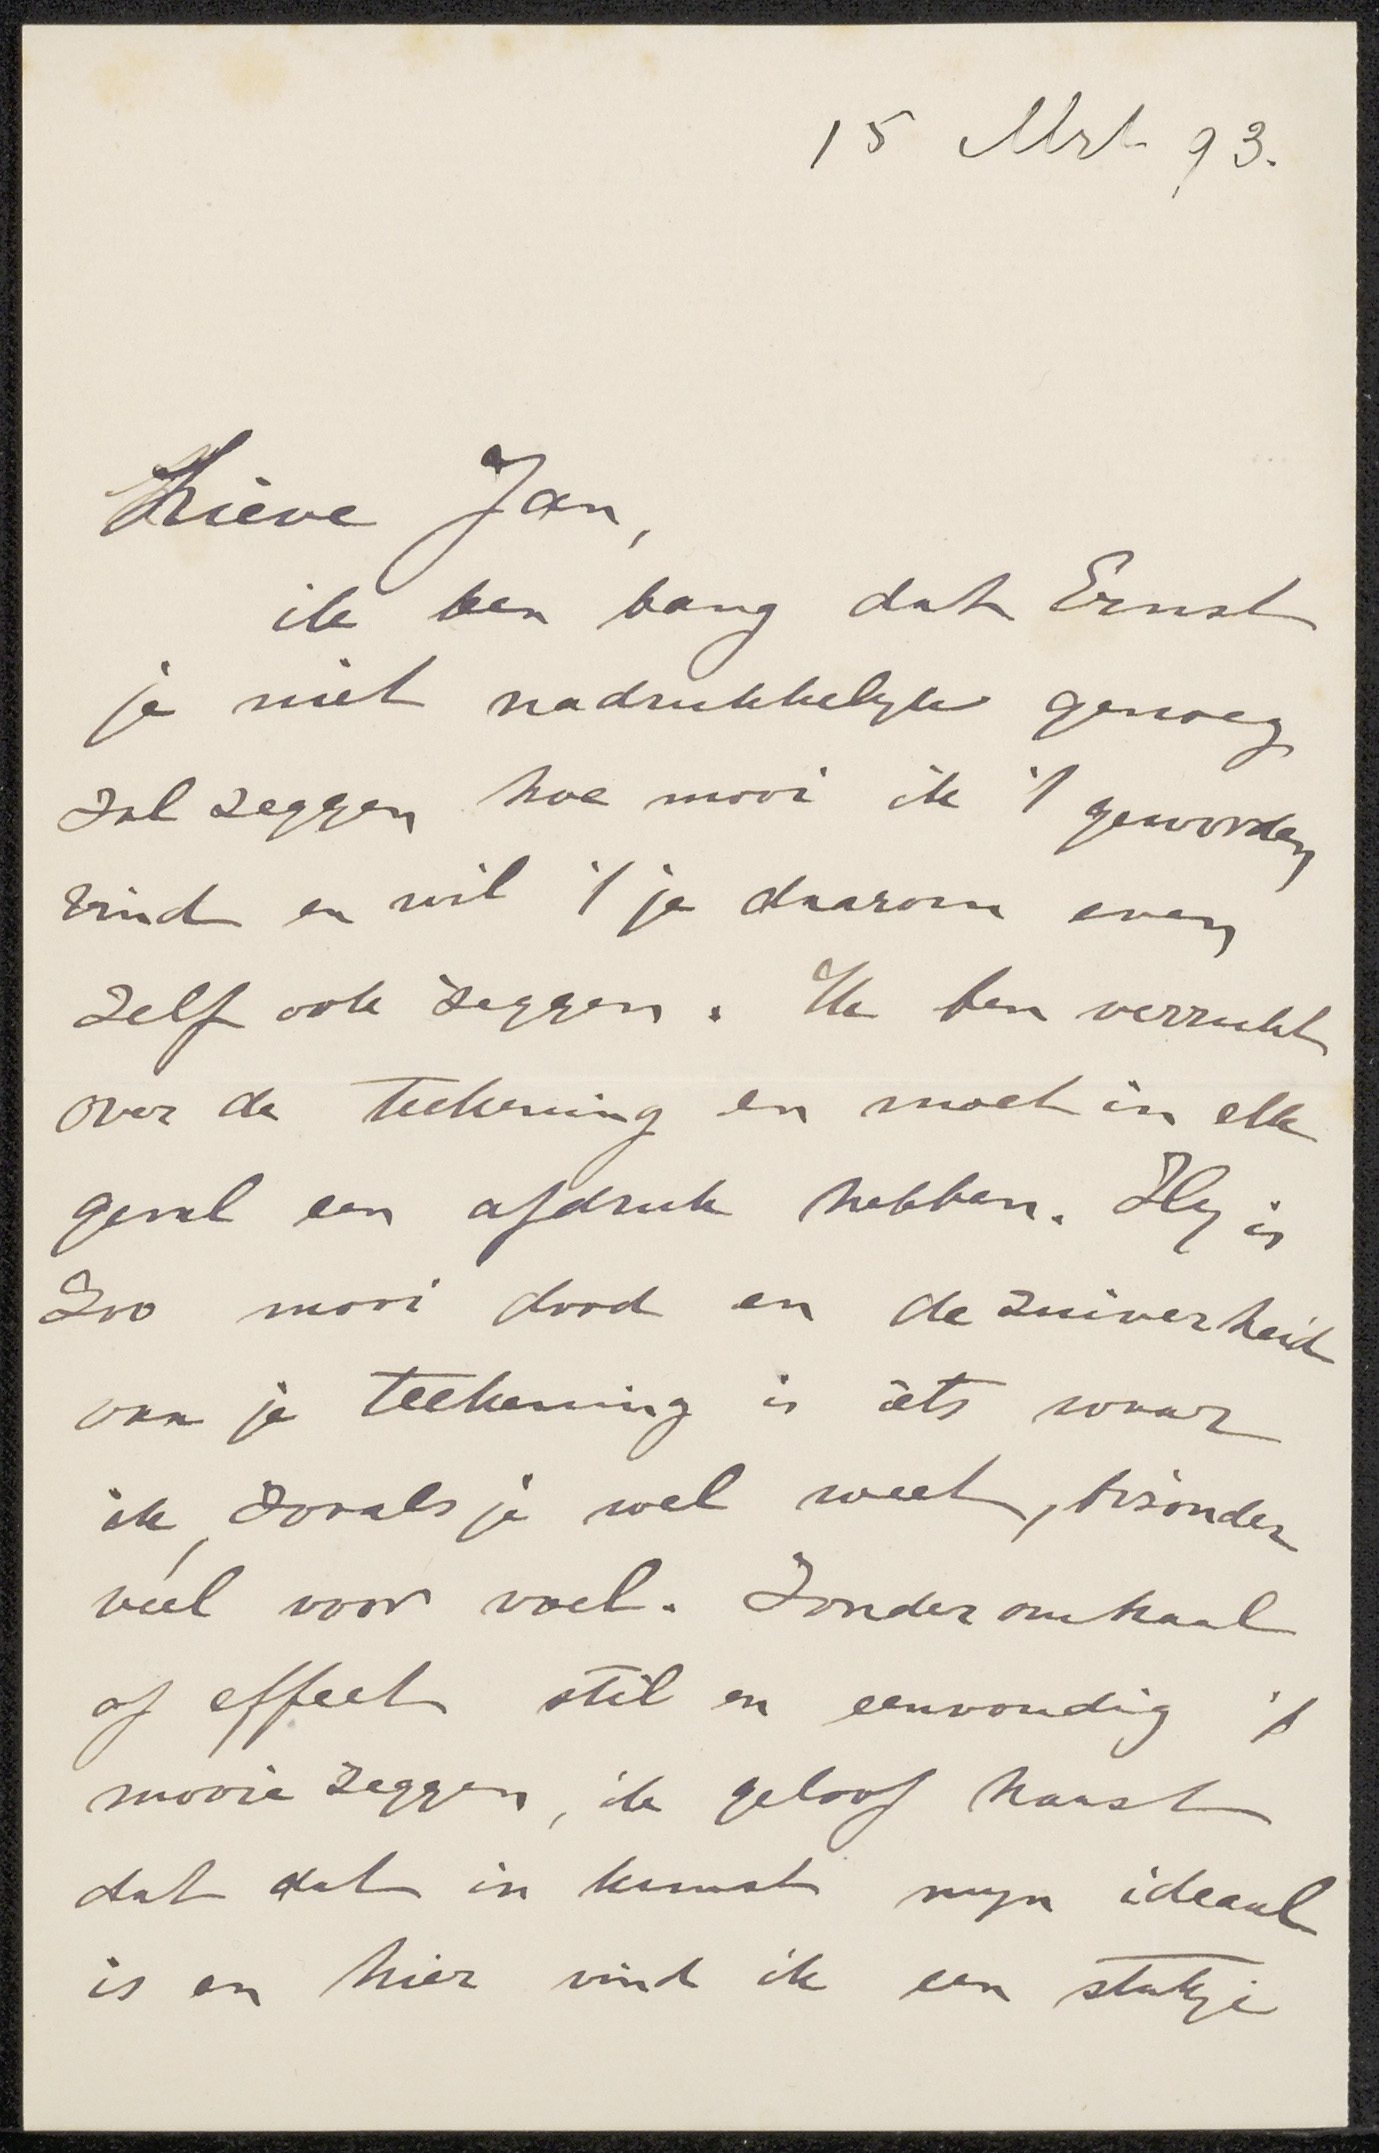 15 Mrt 93.
Lieve Jan,
ik ben bang dat Ernst
je niet nadrukkelyk genoeg
zal zeggen hoe mooi ik 't geworden
vind en wil 't je daarom even
zelf ook zeggen. Ik ben verrukt
over de teekening en moet in elk
geval een afdruk hebben. Hy is
zoo mooi dood en de zuiverheid
van je teekening is iets waar
ik, zooals je wel weet, bizonder
veel voor voel. Zonder omhaal
of effect stil en eenvoudig 't
mooie zeggen, ik geloof haast
dat dat in kunst myn ideaal
is en hier vind ik een stukje